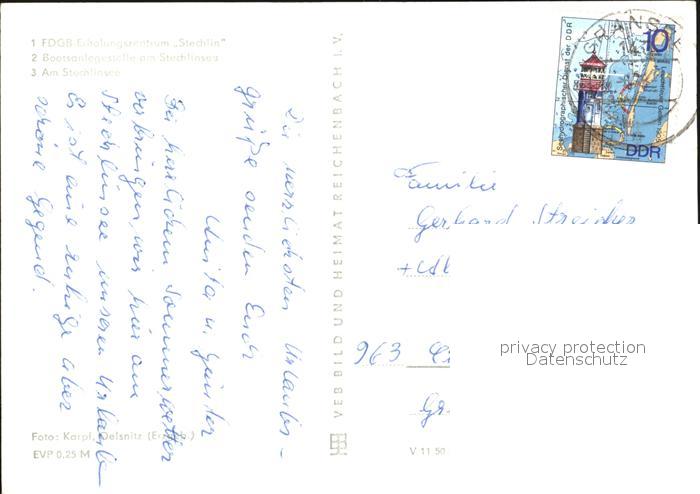 1 FDGB-Erholungszentrum „Stechlin“
2 Bootsanlegestelle am Stechlinsee
3 Am Stechlinsee
Die herzlichsten Urlaubs-
grüße senden Euch
Anita u. Günter
Bei herrlichem Sommerwetter
verbringen wir hier am
Stechlinsee unseren Urlaub
Es ist eine ruhige aber
schöne Gegend.
Foto: Karpf, Oelsnitz (Erzgeb.)
EVP 0,25 M
VEB BILD UND HEIMAT REICHENBACH I. V.
V 11 50
GRANSEE
10
Seehydrographischer Dienst der DDR
DDR
Familie
Gerhard Streicher
963
privacy protection
Datenschutz